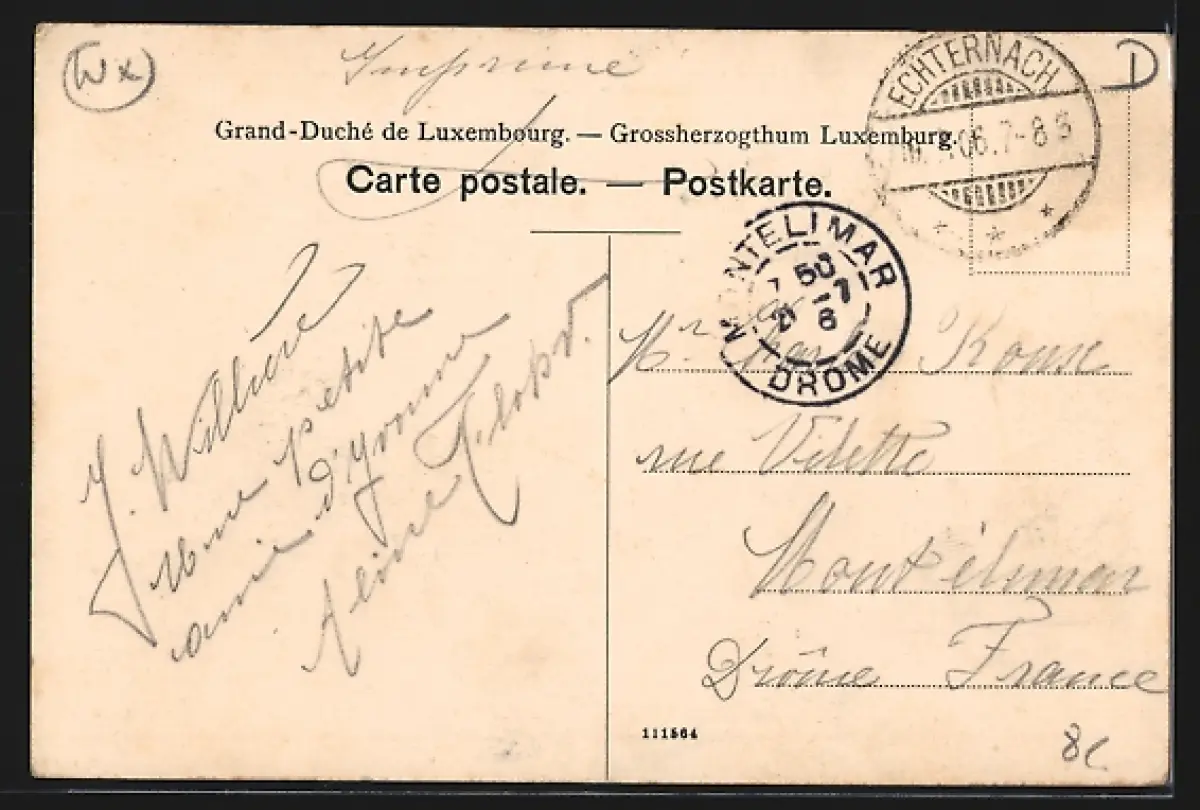 Wx
Imprimé
D
ECHTERNACH
06.7-8 S
Grand-Duché de Luxembourg. — Grossherzogthum Luxemburg.
Carte postale. — Postkarte.
MONTELIMAR
50
21 -7
6
DROME
J. Willière
Une petite
amie d'Yvonne
Aline
Mr
rue Vilette
Montélimar
Drôme France
111564
8c